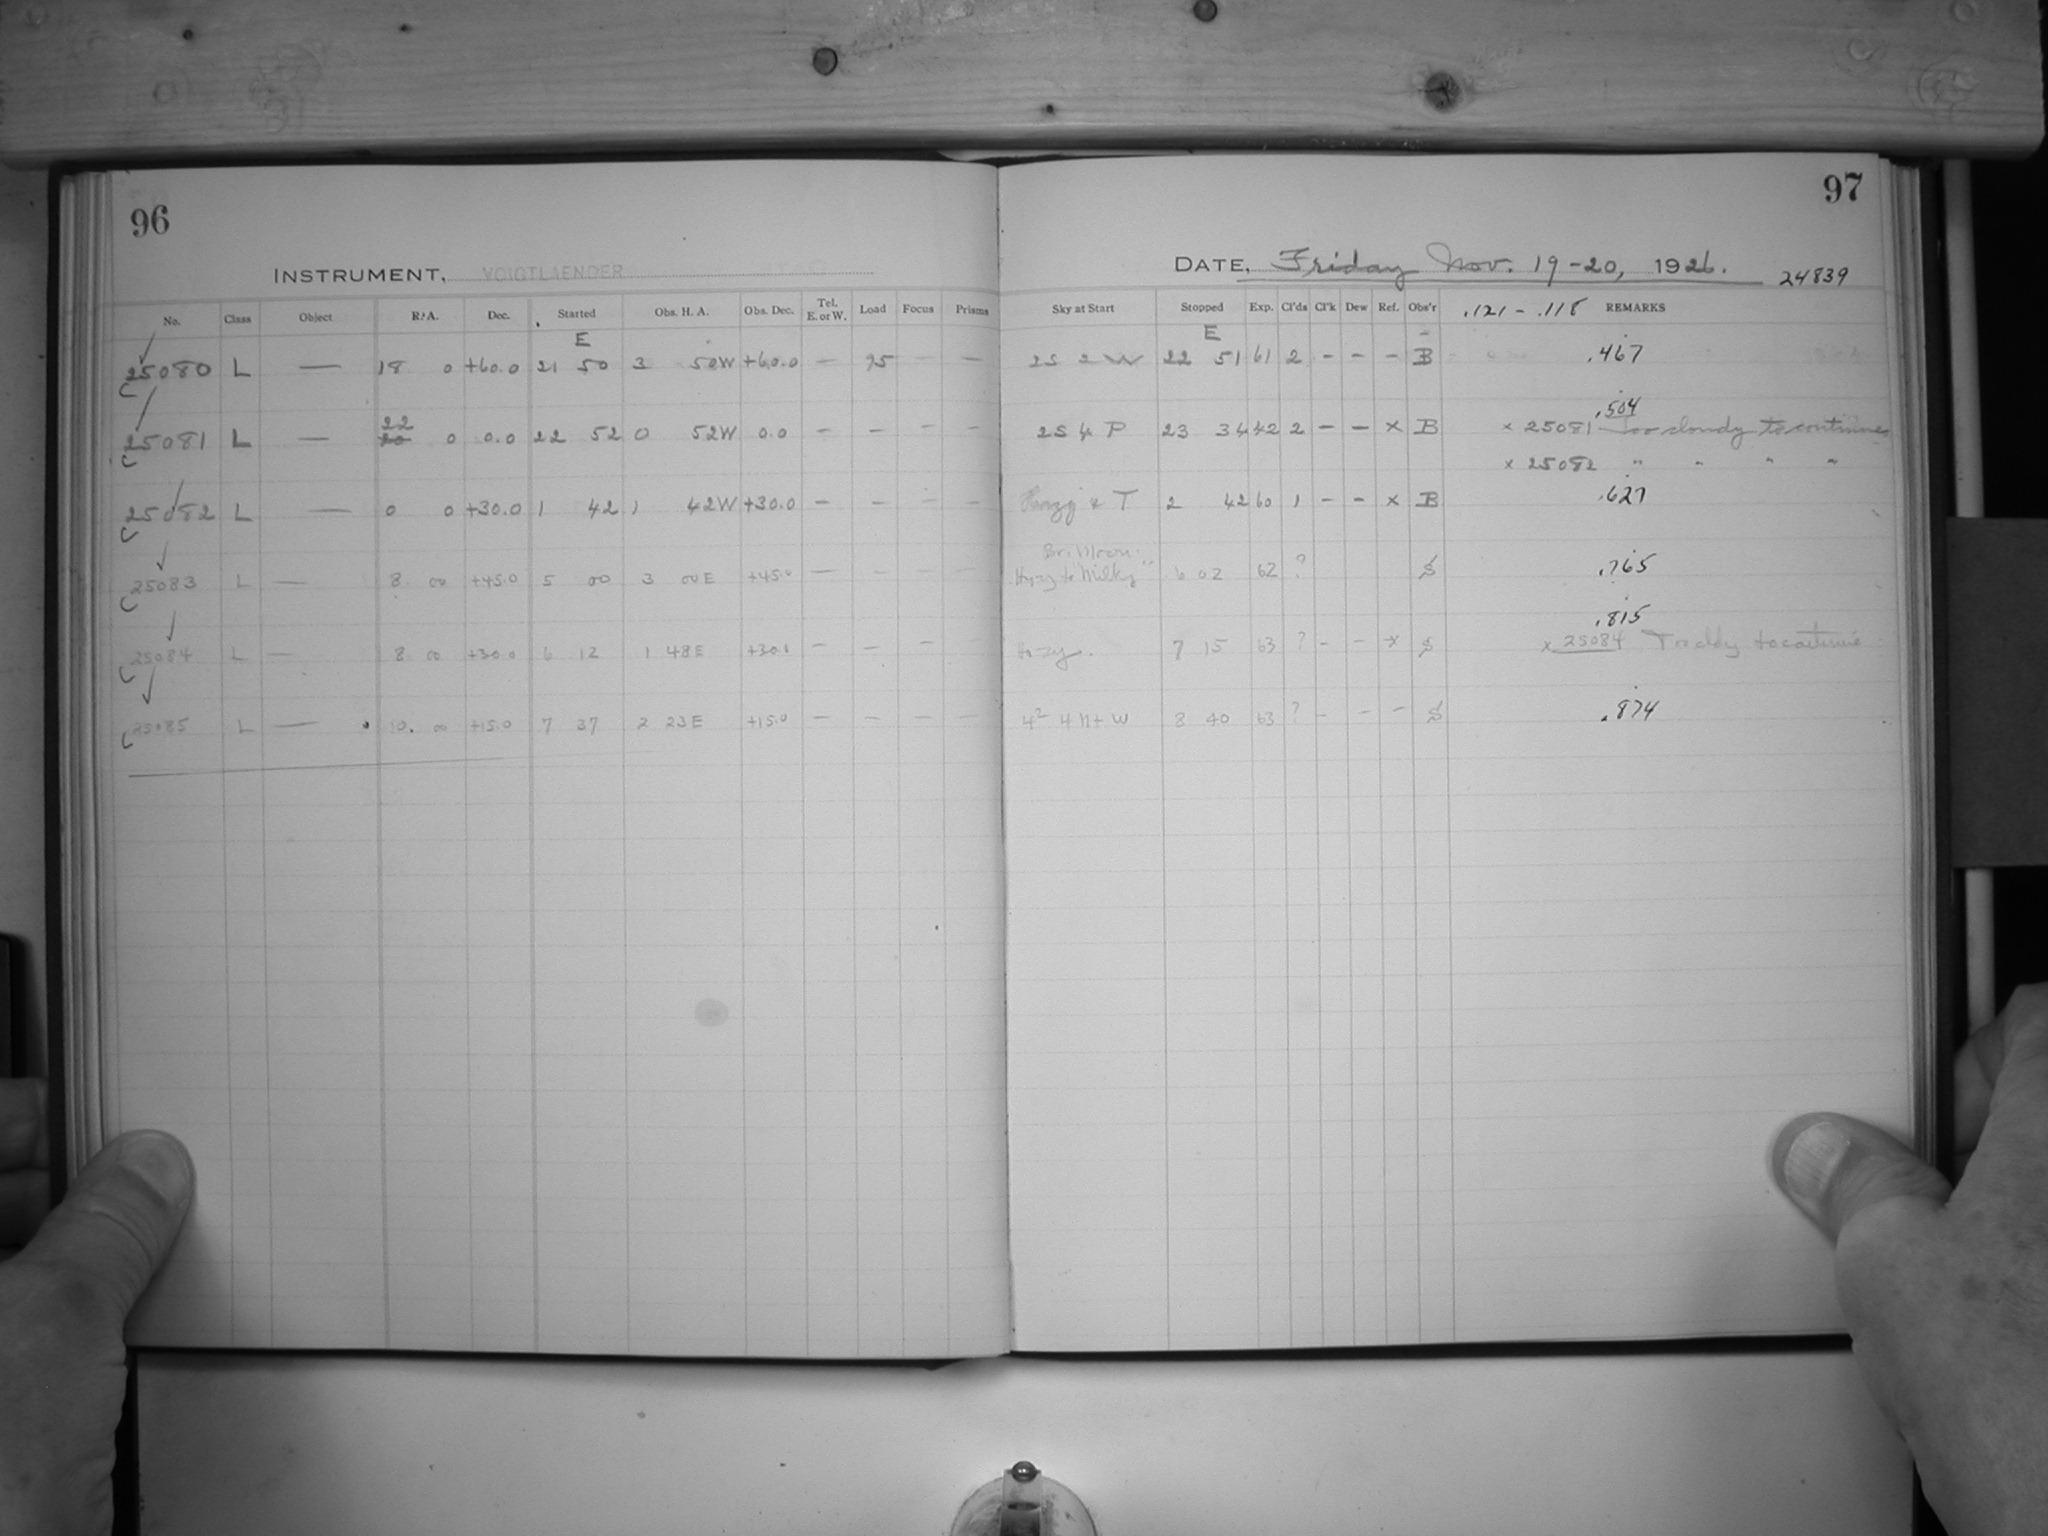 96
97
INSTRUMENT, VOIGTLAENDER
DATE, Friday Nov. 19-20, 1926. 24839
No. Class Object R.A. Dec. Started Obs. H. A. Obs. Dec. Tel. E. or W. Load Focus Prisms Sky at Start Stopped Exp. Cl'ds Cl'k Dew Ref. Obs'r .121 - .118 REMARKS
E E
25080 L — 18 0 +60.0 21 50 3 50W +60.0 — 95 — — 2S 2 W 22 51 61 2 – – – B .467
22 .504
25081 L — 20 0 0.0 22 52 0 52W 0.0 — — — — 2S 4 P 23 34 42 2 – – x B x 25081 Too cloudy to continue
x 25082 " " " "
25082 L — 0 0 +30.0 1 42 1 42W +30.0 — — — — Hazy & T 2 42 60 1 – – x B .627
Br. Moon.
25083 L — 8 00 +45.0 5 00 3 00E +45.0 — — — — Hazy to "Milky" 6 02 62 ? S .765
.815
25084 L — 8 00 +30.0 6 12 1 48E +30.0 — — — — Hazy. 7 15 63 ? – – x S x 25084 to continue
25085 L — 10. 00 +15.0 7 37 2 23E +15.0 — — — — 4² 4 Nt W 8 40 63 ? – – – S .874